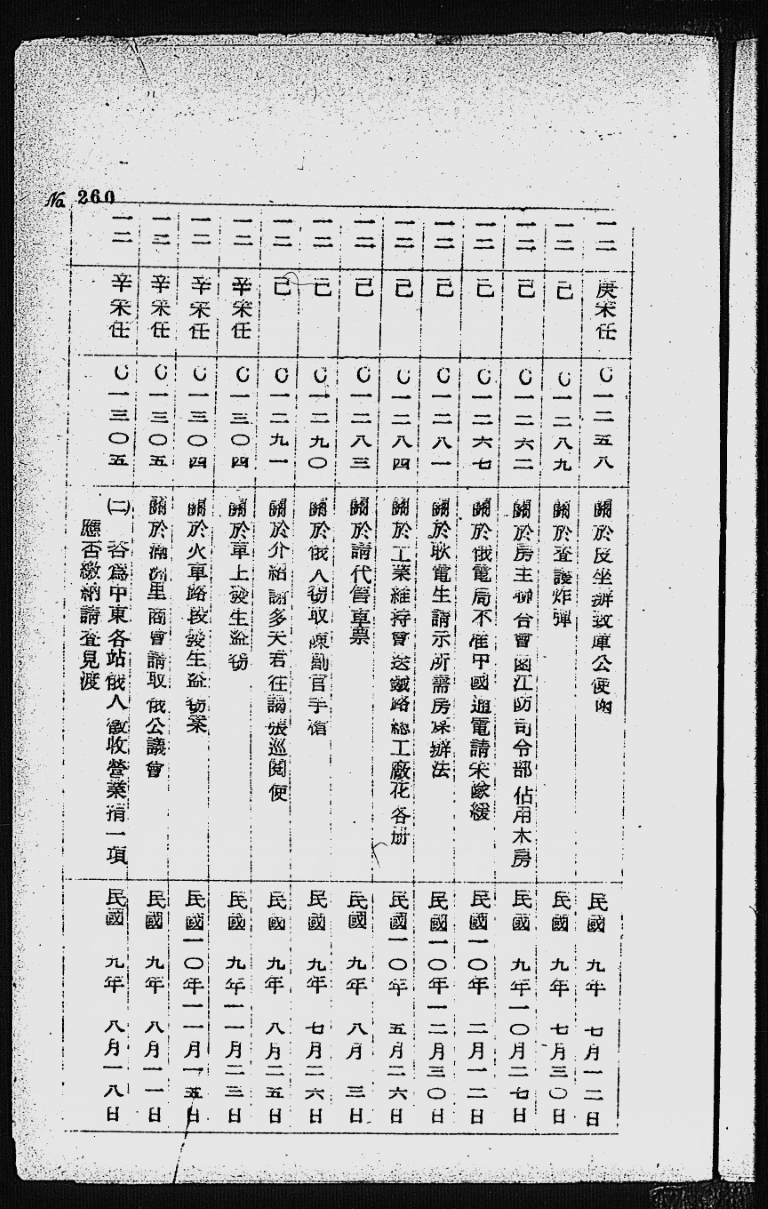 No. 260
一二 庚宋任 〇一二五八 關於反坐辦致庫公使函 民國 九年 七月一二日
一二 己 〇一二八九 關於查護炸彈 民國 九年 七月三〇日
一二 己 〇一二六二 關於房主 台會函江防司令部佔用木房 民國 九年一〇月二七日
一二 己 〇一二六七 關於俄電局不准中國通電請宋 緩 民國一〇年 二月一二日
一二 己 〇一二八一 關於耿電生請示所需房 辦法 民國一〇年一二月三〇日
一二 己 〇一二八四 關於工業維持會送鐵路總工廠花各册 民國一〇年 五月二六日
一二 己 〇一二八三 關於請代售車票 民國 九年 八月 三日
一二 己 〇一二九〇 關於俄人竊取陳勛官手槍 民國 九年 七月二六日
一二 己 〇一二九一 關於介紹謝多夫君往謁張巡閱使 民國 九年 八月二五日
一二 辛宋任 〇一三〇四 關於車上發生盜竊 民國 九年一一月二三日
一二 辛宋任 〇一三〇四 關於火車路段發生盜竊案 民國一〇年一一月一五日
一三 辛宋任 〇一三〇五 關於滿洲里商會請取俄公議會 民國 九年 八月一一日
一二 辛宋任 〇一三〇五 (二)咨爲中東各站俄人 收營業捐一項 民國 九年 八月一八日
應否繳納請查見渡